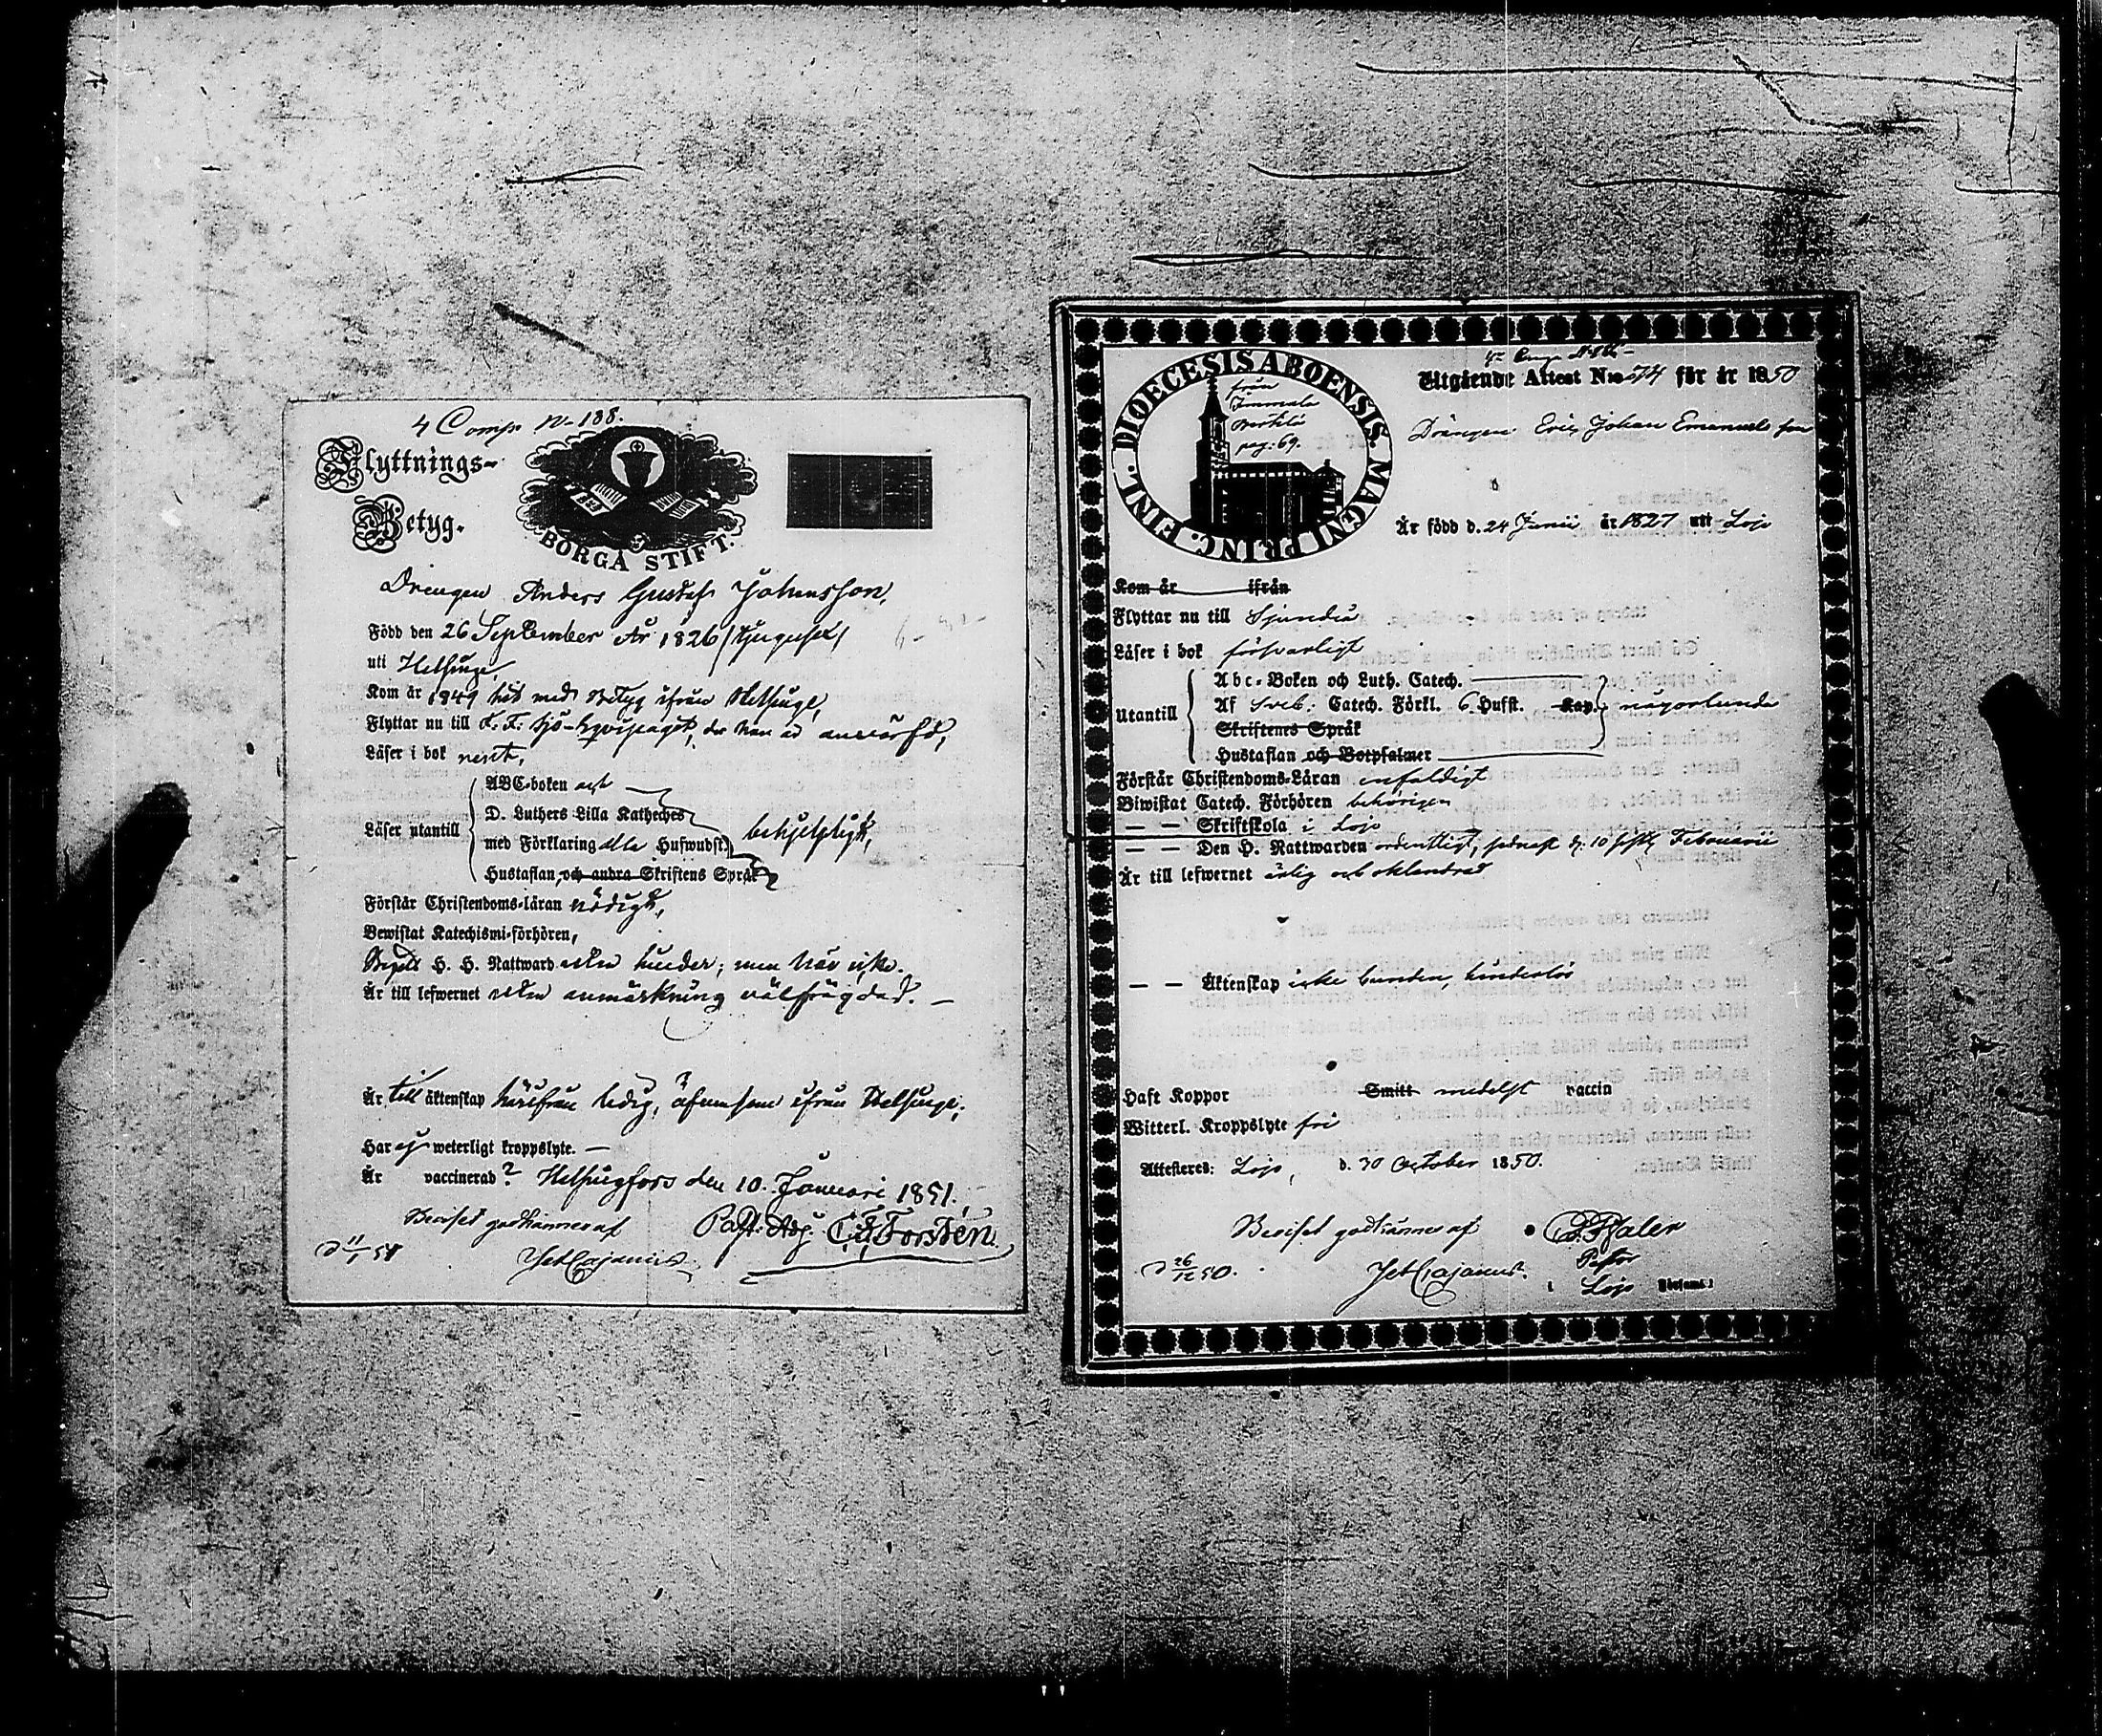 4 Comp N- 188.
Flyttnings-
Betyg.
BORGÅ STIFT.
Drengen Anders Gustaf Johansson,
Född den 26 September År 1826 /tjugusex/
uti Helsinge,
Kom år 1849 hit med Betyg ifrån Helsinge,
Flyttar nu till K. F. Sjö-Eqvipaget, der han är
Läser i bok rent,
ABC-boken och
D. Luthers Lilla Kateches
Läser utantill med Förklaring alla Hufwudst. behjelpligt,
Hustaflan, och andra Skriftens Språk
Förstår Christendoms-läran nödigt,
Bewistat Katechismi-förhören,
Begått H. H. Nattward utan hinder; men här icke.
Är till lefwernet utan anmärkning välfrägdad. —
Är till äktenskap härifrån ledig, äfvensom ifrån Helsinge;
Har ej weterligt kroppslyte. —
Är vaccinerad? Helsingfors den 10. Januari 1851.
Beviset godkännes af Past. Adj. C. F. Forstén.
d 11/1 51 Cajanus
DIOECESIS ABOENSIS. MAGNI PRINC. FINL.
från
pag: 69.
Utgående Attest N:o 74 för år 1850
Drängen Eric Johan Emanuelsson
Är född d. 24 Junii år 1827 uti Lojo
Kom år ifrån
Flyttar nu till Sjundeå
Läser i bok försvarligt
Abc-Boken och Luth. Catech.
Utantill Af Sveb: Catech. Förkl. 6 Hufst. Kap. någorlunda
Skriftenes Språk
Hustaflan och Botpsalmer
Förstår Christendoms-Läran enfaldigt
Biwistat Catech. Förhören behörigen
— — Skriftskola i Lojo
— — Den H. Nattwarden ordentligt, sednast d: 10 sistl. Februarii
Är till lefwernet ärlig och oklandrad
— — Äktenskap icke bunden, hinderlös
Haft Koppor Smitt medelst vaccin
Witterl. Kroppslyte fri
Attesteres: Lojo, d. 30 October 1850.
Beviset godkännes af
d 26/12 50. Cajanus.
Pastor
i Lojo Församl: